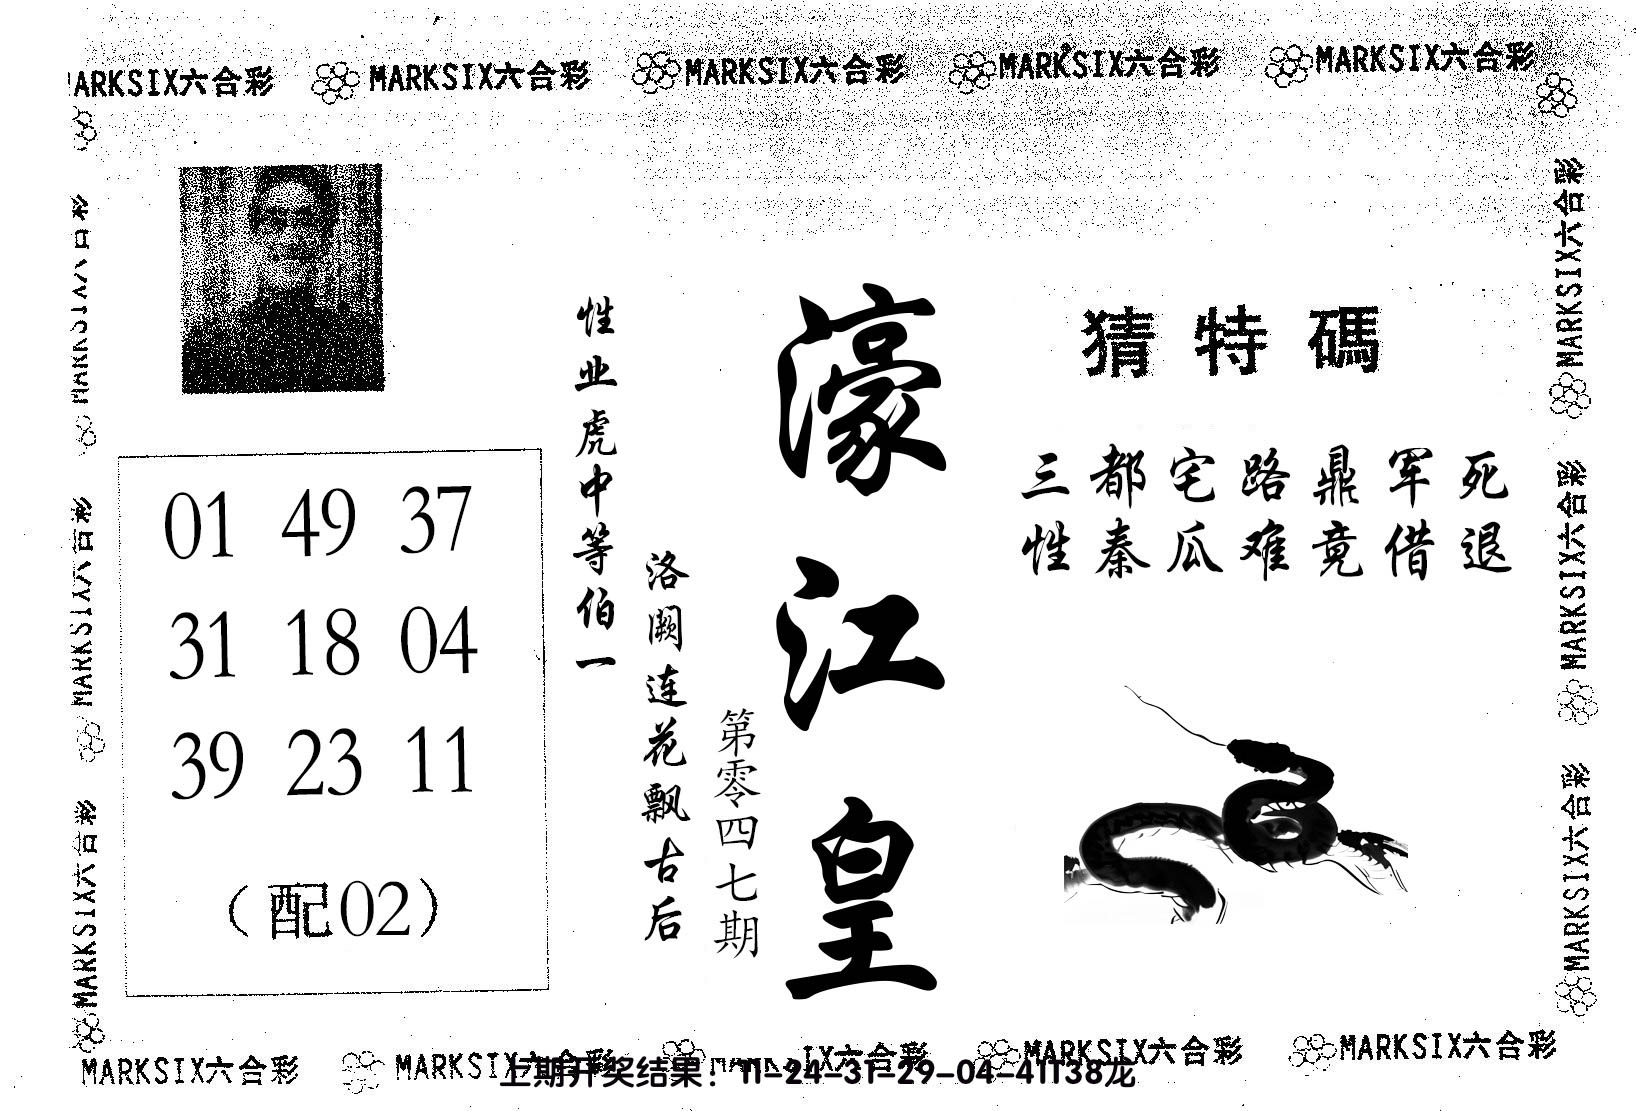 MARKSIX六合彩 MARKSIX六合彩 MARKSIX六合彩 MARKSIX六合彩 MARKSIX六合彩
MARKSIX六合彩
MARKSIX六合彩
MARKSIX六合彩
01 49 37
31 18 04
39 23 11
（配02）
性业虎中等伯一
洛阙连花飘古后
第零四七期
濠江皇
猜特碼
三都宅路鼎军死
性秦瓜难竟借退
MARKSIX六合彩
MARKSIX六合彩
MARKSIX六合彩
MARKSIX六合彩 MARKSIX六合彩 MARKSIX六合彩 MARKSIX六合彩 MARKSIX六合彩
上期开奖结果：11-24-31-29-04-41T38龙